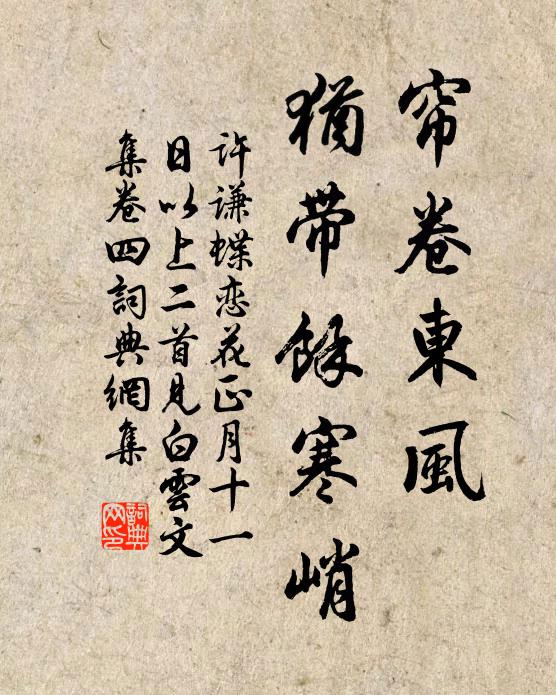 帘卷東風
猶帶餘寒峭
许謙蝶恋花正月十一
日以上二首見白雲文
集卷四詞典網集
詞典
网印